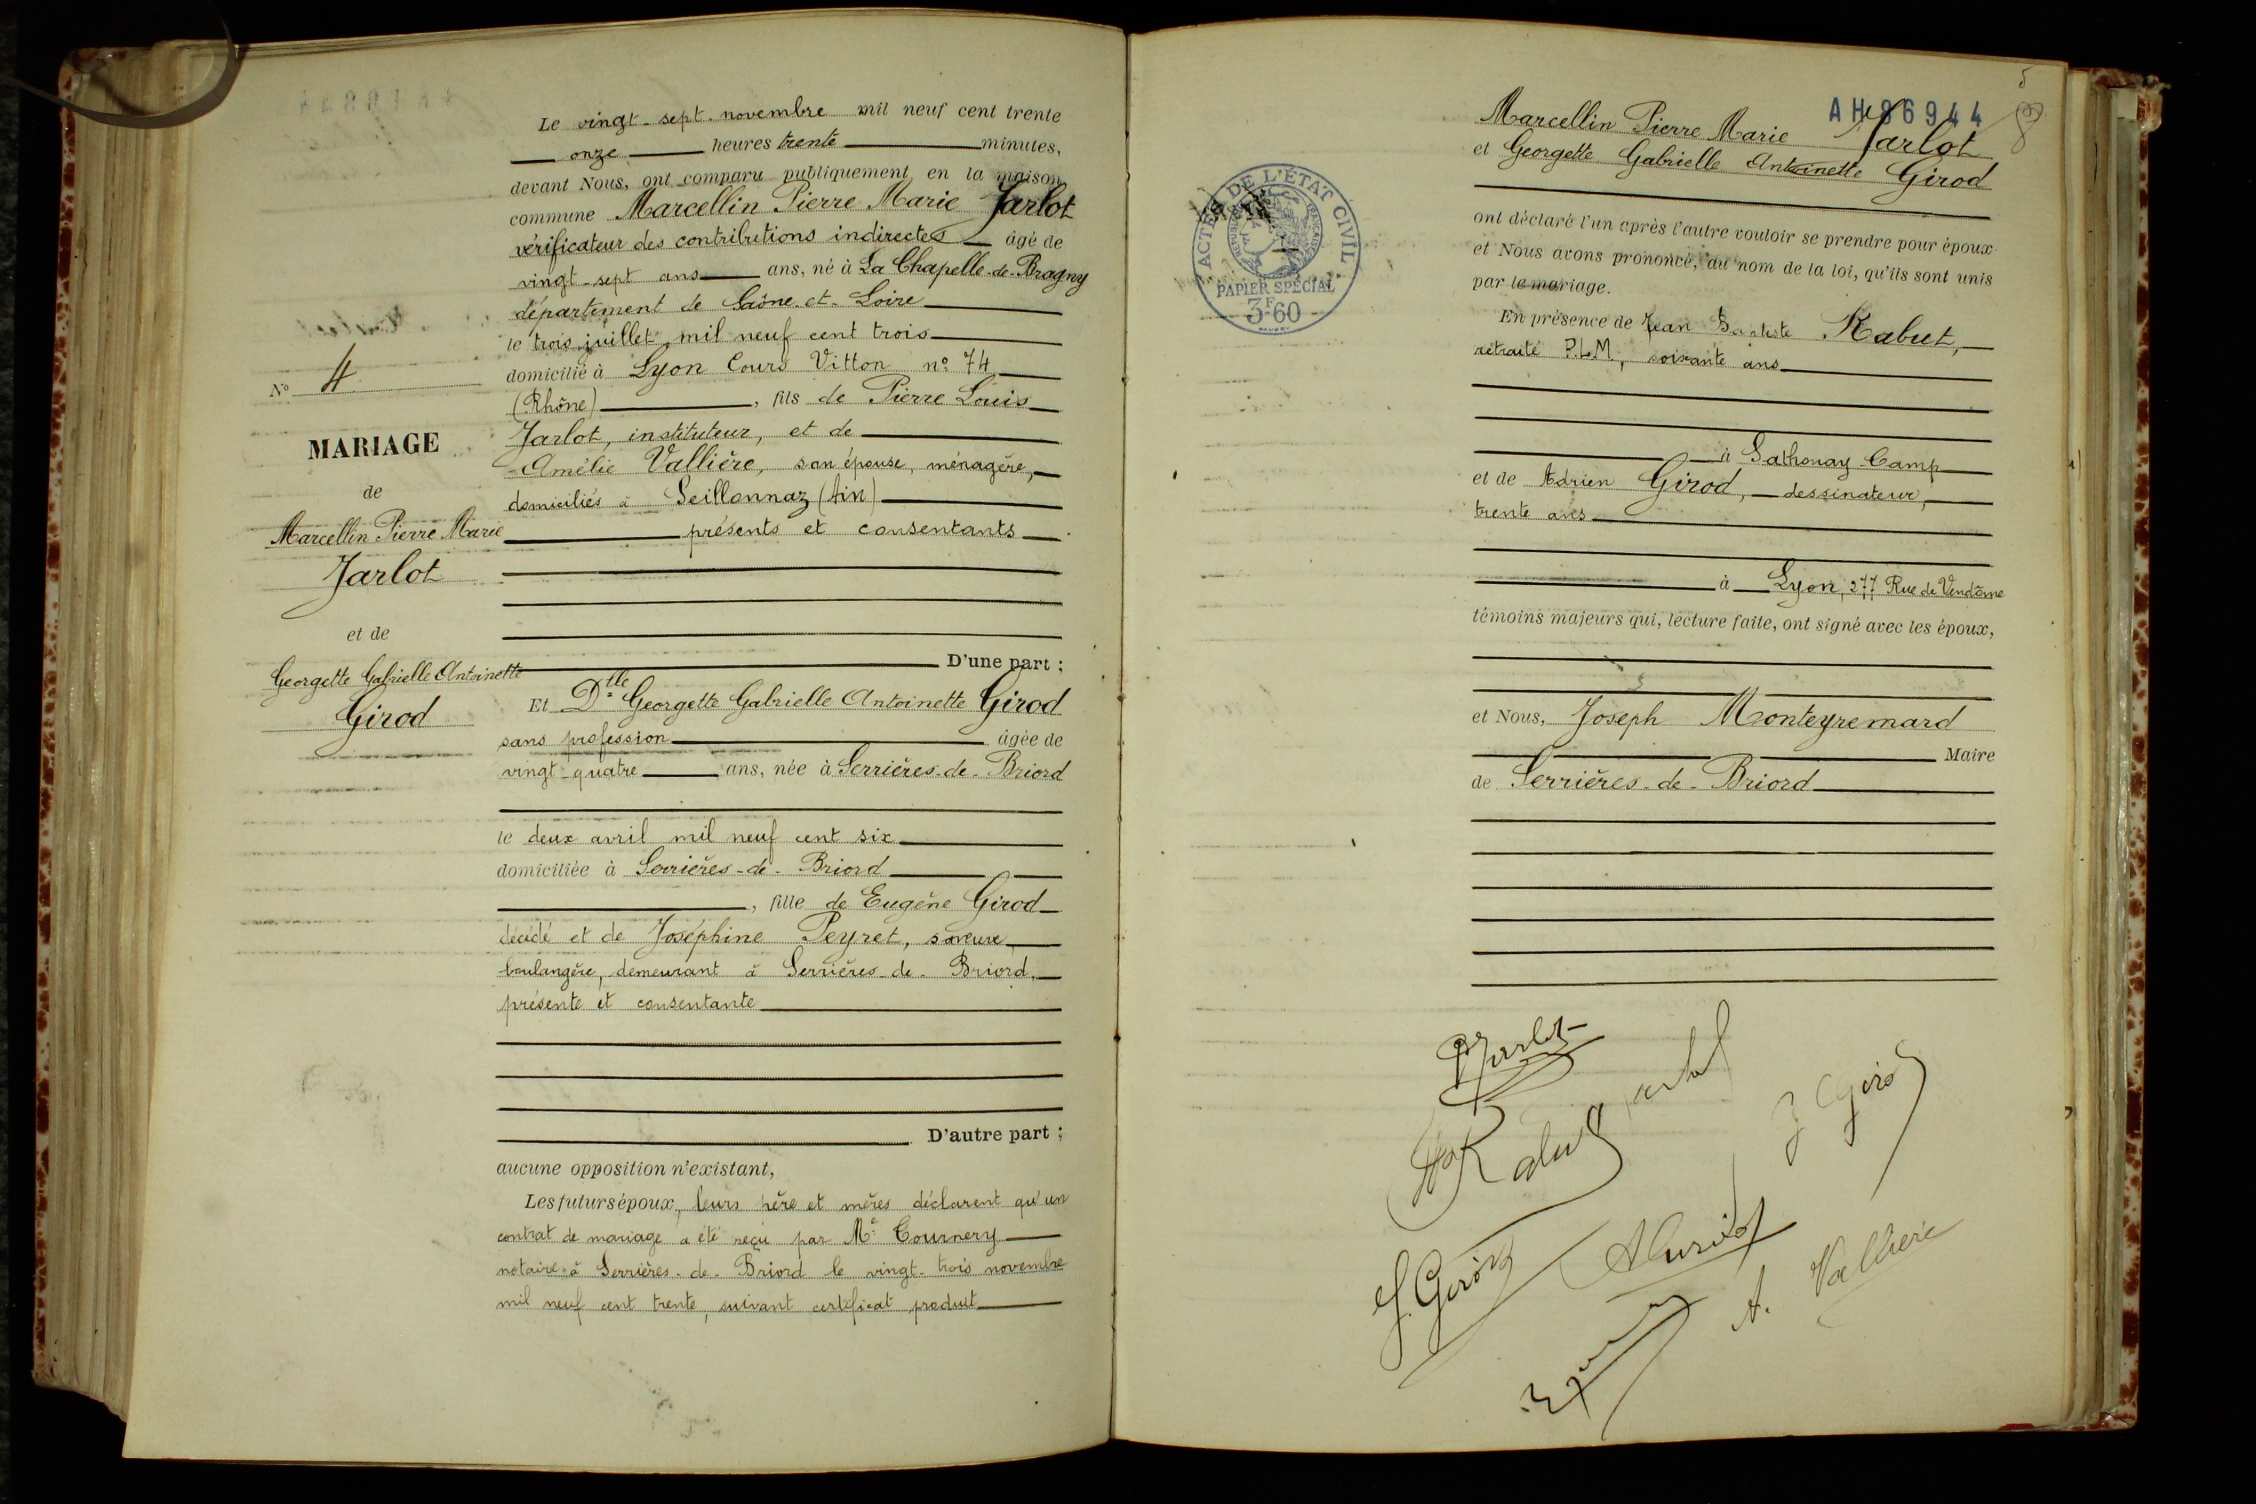 Le vingt-sept novembre mil neuf cent trente
onze heures trente minutes,
devant Nous, ont comparu publiquement en la maison
commune Marcellin Pierre Marie Jarlot
vérificateur des contributions indirectes âgé de
vingt-sept ans ans, né à La Chapelle-de-Bragny
département de Saône-et-Loire
le trois juillet mil neuf cent trois
domicilié à Lyon Cours Vitton nº 74
(Rhône), fils de Pierre Louis
Jarlot, instituteur, et de
Amélie Vallière, son épouse, ménagère,
domiciliés à Seillonnaz (Ain)
présents et consentants
D'une part :
Et Dlle Georgette Gabrielle Antoinette Girod
sans profession âgée de
vingt-quatre ans, née à Serrières-de-Briord
le deux avril mil neuf cent six
domiciliée à Serrières-de-Briord
, fille de Eugène Girod
décédé et de Joséphine Peyret, sa veuve
boulangère, demeurant à Serrières-de-Briord,
présente et consentante
D'autre part :
aucune opposition n'existant,
Les futurs époux, leurs père et mères déclarent qu'un
contrat de mariage a été reçu par Me Tournery
notaire à Serrières-de-Briord le vingt-trois novembre
mil neuf cent trente, suivant certificat produit
Nº 4
MARIAGE
de
Marcellin Pierre Marie
Jarlot
et de
Georgette Gabrielle Antoinette
Girod
5
AH86944
8
ACTES DE L'ÉTAT CIVIL
RÉPUBLIQUE FRANÇAISE
PAPIER SPÉCIAL
3F60
Marcellin Pierre Marie Jarlot
et Georgette Gabrielle Antoinette Girod
ont déclaré l'un après l'autre vouloir se prendre pour époux
et Nous avons prononcé, au nom de la loi, qu'ils sont unis
par le mariage.
En présence de Jean Baptiste Rabut,
retraité P.L.M., soixante ans
à Sathonay-Camp
et de Adrien Girod, dessinateur,
trente ans
à Lyon, 277 Rue de Vendôme
témoins majeurs qui, lecture faite, ont signé avec les époux,
et Nous, Joseph Monteyremard
Maire
de Serrières-de-Briord
Jarlot
Jarlot
Rabut
J Girod
G. Girod
A. Vallière